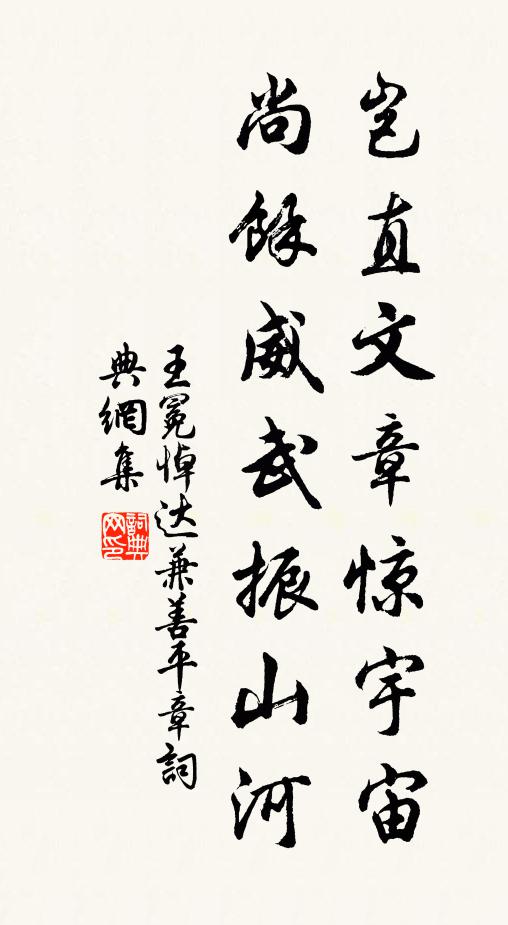 岂直文章惊宇宙
尚餘威武振山河
王冕悼达兼善平章詞
典網集
詞典
网印